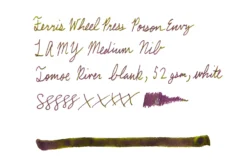 Ferris Wheel Press Poison Envy
LAMY Medium Nib
Tomoe River blank, 52 gsm, white